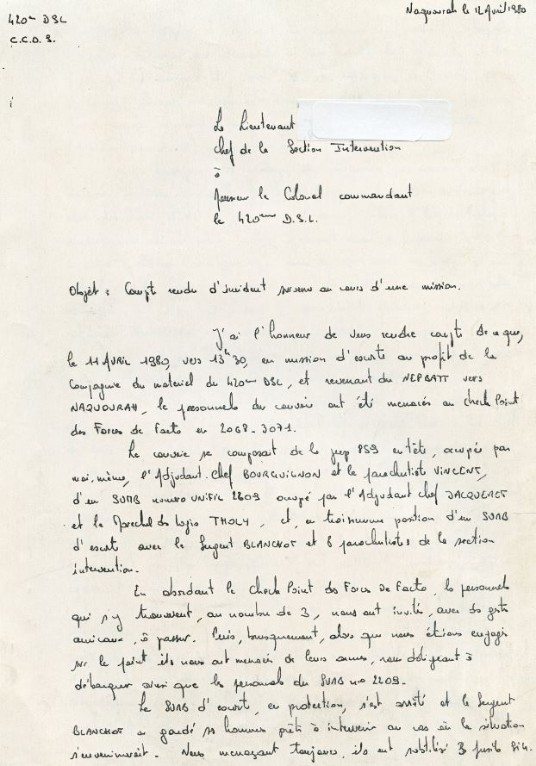 420ème DSL
Naqourah le 12 Avril 1980
C.C.D.S.
Le Lieutenant
Chef de la Section Intervention
à
Monsieur le Colonel commandant
le 420ème D.S.L.
Objet : Compte rendu d'incident survenu au cours d'une mission.
J'ai l'honneur de vous rendre compte de ce que,
le 11 AVRIL 1980, vers 13h30, en mission d'escorte au profit de la
Compagnie du materiel du 420ème DSL, et revenant du NEPBATT vers
NAQUOURAH, le personnels du convoi ont été menacés au Check Point
des Forces de Facto en 2068-3071.
Le convoi se composait de la jeep 859 en tête, occupée par
moi, même, l'Adjudant. Chef BOURGUIGNON et le parachutiste VINCENT,
d'un SUMB numero UNIFIL 2209 occupé par l'Adjudant Chef JACQUERET
et le Marechal des Logis THOLY, et, en troisieme position d'un SUMB
d'escorte avec le Sergent BLANCHOT et 8 parachutistes de la section
intervention.
En abordant le Check Point des Forces De Facto, les personnels
qui s'y trouvaient, au nombre de 3, nous ont invités, avec des gestes
amicaux, à passer. Puis, brusquement, alors que nous étions engagés
sur le point ils nous ont menacés de leurs armes, nous obligeant à
débarquer ainsi que les personnels du SUMB no 2209.
Le SUMB d'escorte, en protection, s'est arrêté et le Sergent
BLANCHOT a gardé ses hommes prêts à intervenir au cas où la situation
s'envenimerait. Nous menaçant toujours, ils ont subtilisé 3 fusils